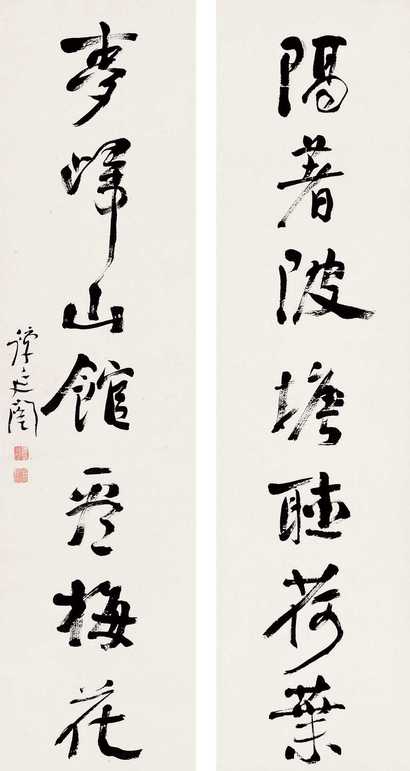 隔著陂塘聽荷葉
夢歸山館覓梅花
譚延闓